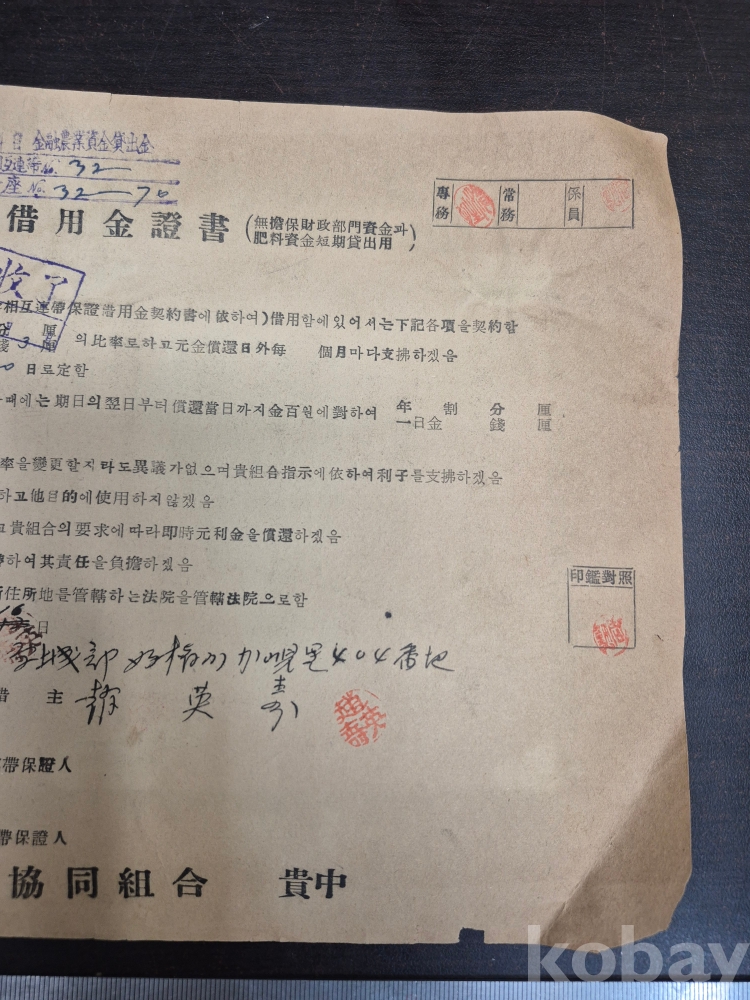 日 金融農業資金貸出金
連帶 No. 32
座 No. 32-70
借用金證書 (無擔保財政部門資金과 肥料資金短期貸出用)
專務 常務 係員
收了
相互連帶保證借用金契約書에依하여)借用함에있어서는下記各項을契約함
錢 3 厘 의比率로하고元金償還日外每 個月마다支拂하겠음
日로定함
때에는期日의翌日부터償還當日까지金百원에對하여 年 割 分 厘
一日金 錢 厘
率을變更할지라도異議가없으며貴組合指示에依하여利子를支拂하겠음
하고他目的에使用하지않겠음
貴組合의要求에따라即時元利金을償還하겠음
하여其責任을負擔하겠음
住所地를管轄하는法院을管轄法院으로함
印鑑對照
日
404番地
借主 英
趙英壽
帶保證人
帶保證人
協同組合 貴中
kobay